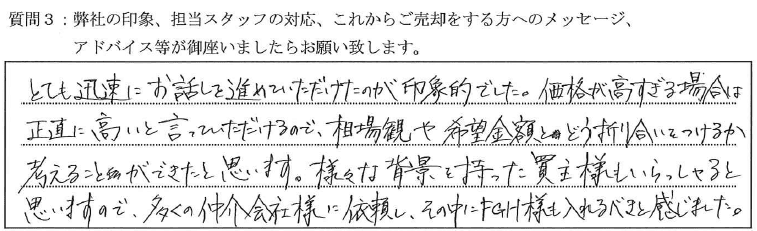 質問３：弊社の印象、担当スタッフの対応、これからご売却をする方へのメッセージ、
アドバイス等が御座いましたらお願い致します。
とても迅速にお話しを進めていただけたのが印象的でした。価格が高すぎる場合は
正直に高いと言っていただけるので、相場観や希望金額とどう折り合いをつけるか
考えることができたと思います。様々な背景を持った買主様もいらっしゃると
思いますので、多くの仲介会社様に依頼し、その中にFGH様も入れるべきと感じました。